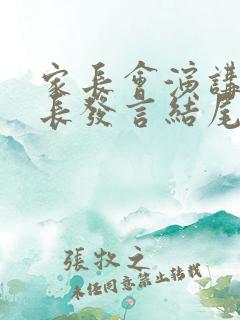 家長會演講
長發言結尾
張牧之
未任同意禁止轉載